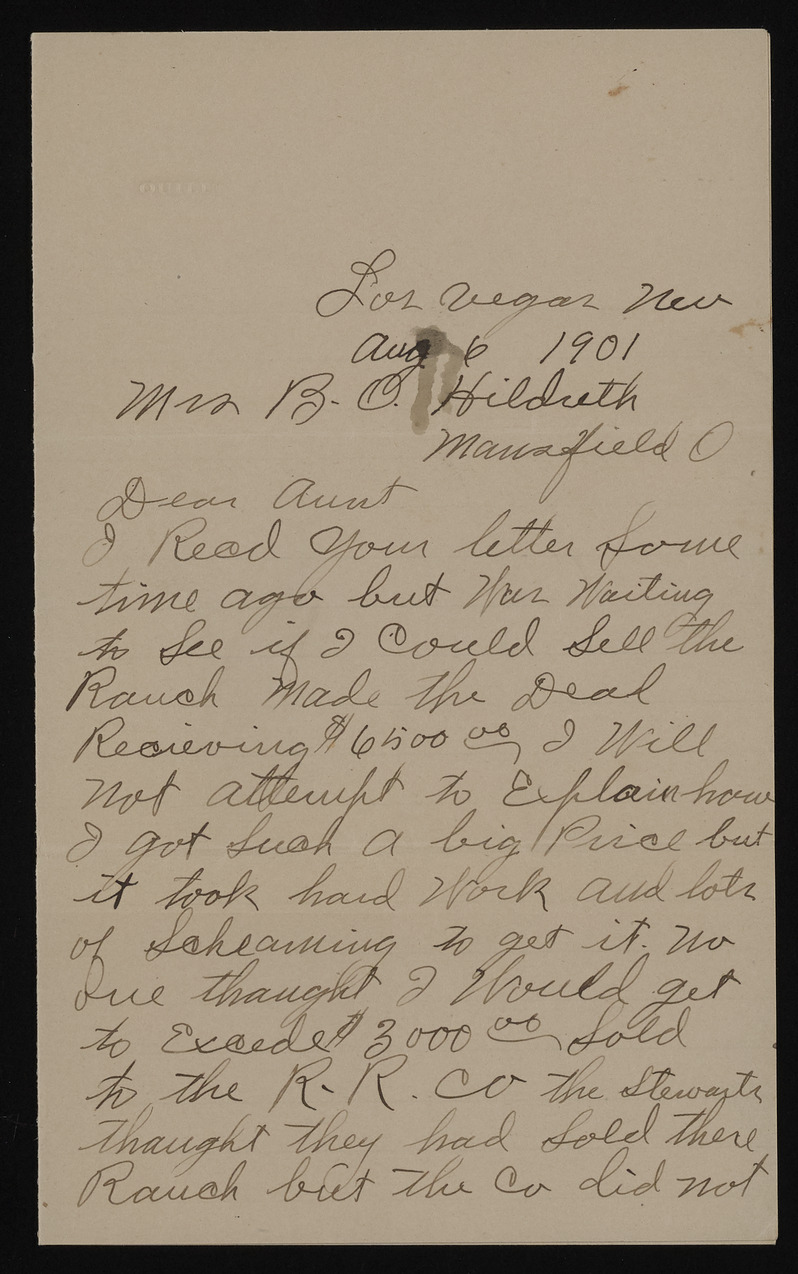 Los Vegas Nev
Aug 6 1901
Mrs B. O. Hildreth
Mansfield O
Dear Aunt
I Recd Your letter Some
time ago but Was Waiting
to See if I Could Sell the
Ranch Made the Deal
Recieving $6500 00, I Will
not attempt to Explain how
I got Such a big Price but
it took hard Work and lots
of Scheaming to get it. No
One thought I Would get
to Excede $3000 00 Sold
to the R. R. Co the Stewarts
thaught they had Sold there
Ranch but the Co did not